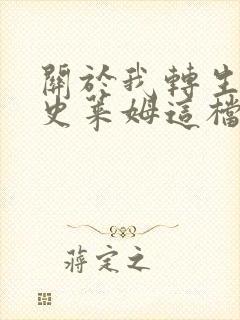 關於我轉生
史萊姆這檔
蔣定之